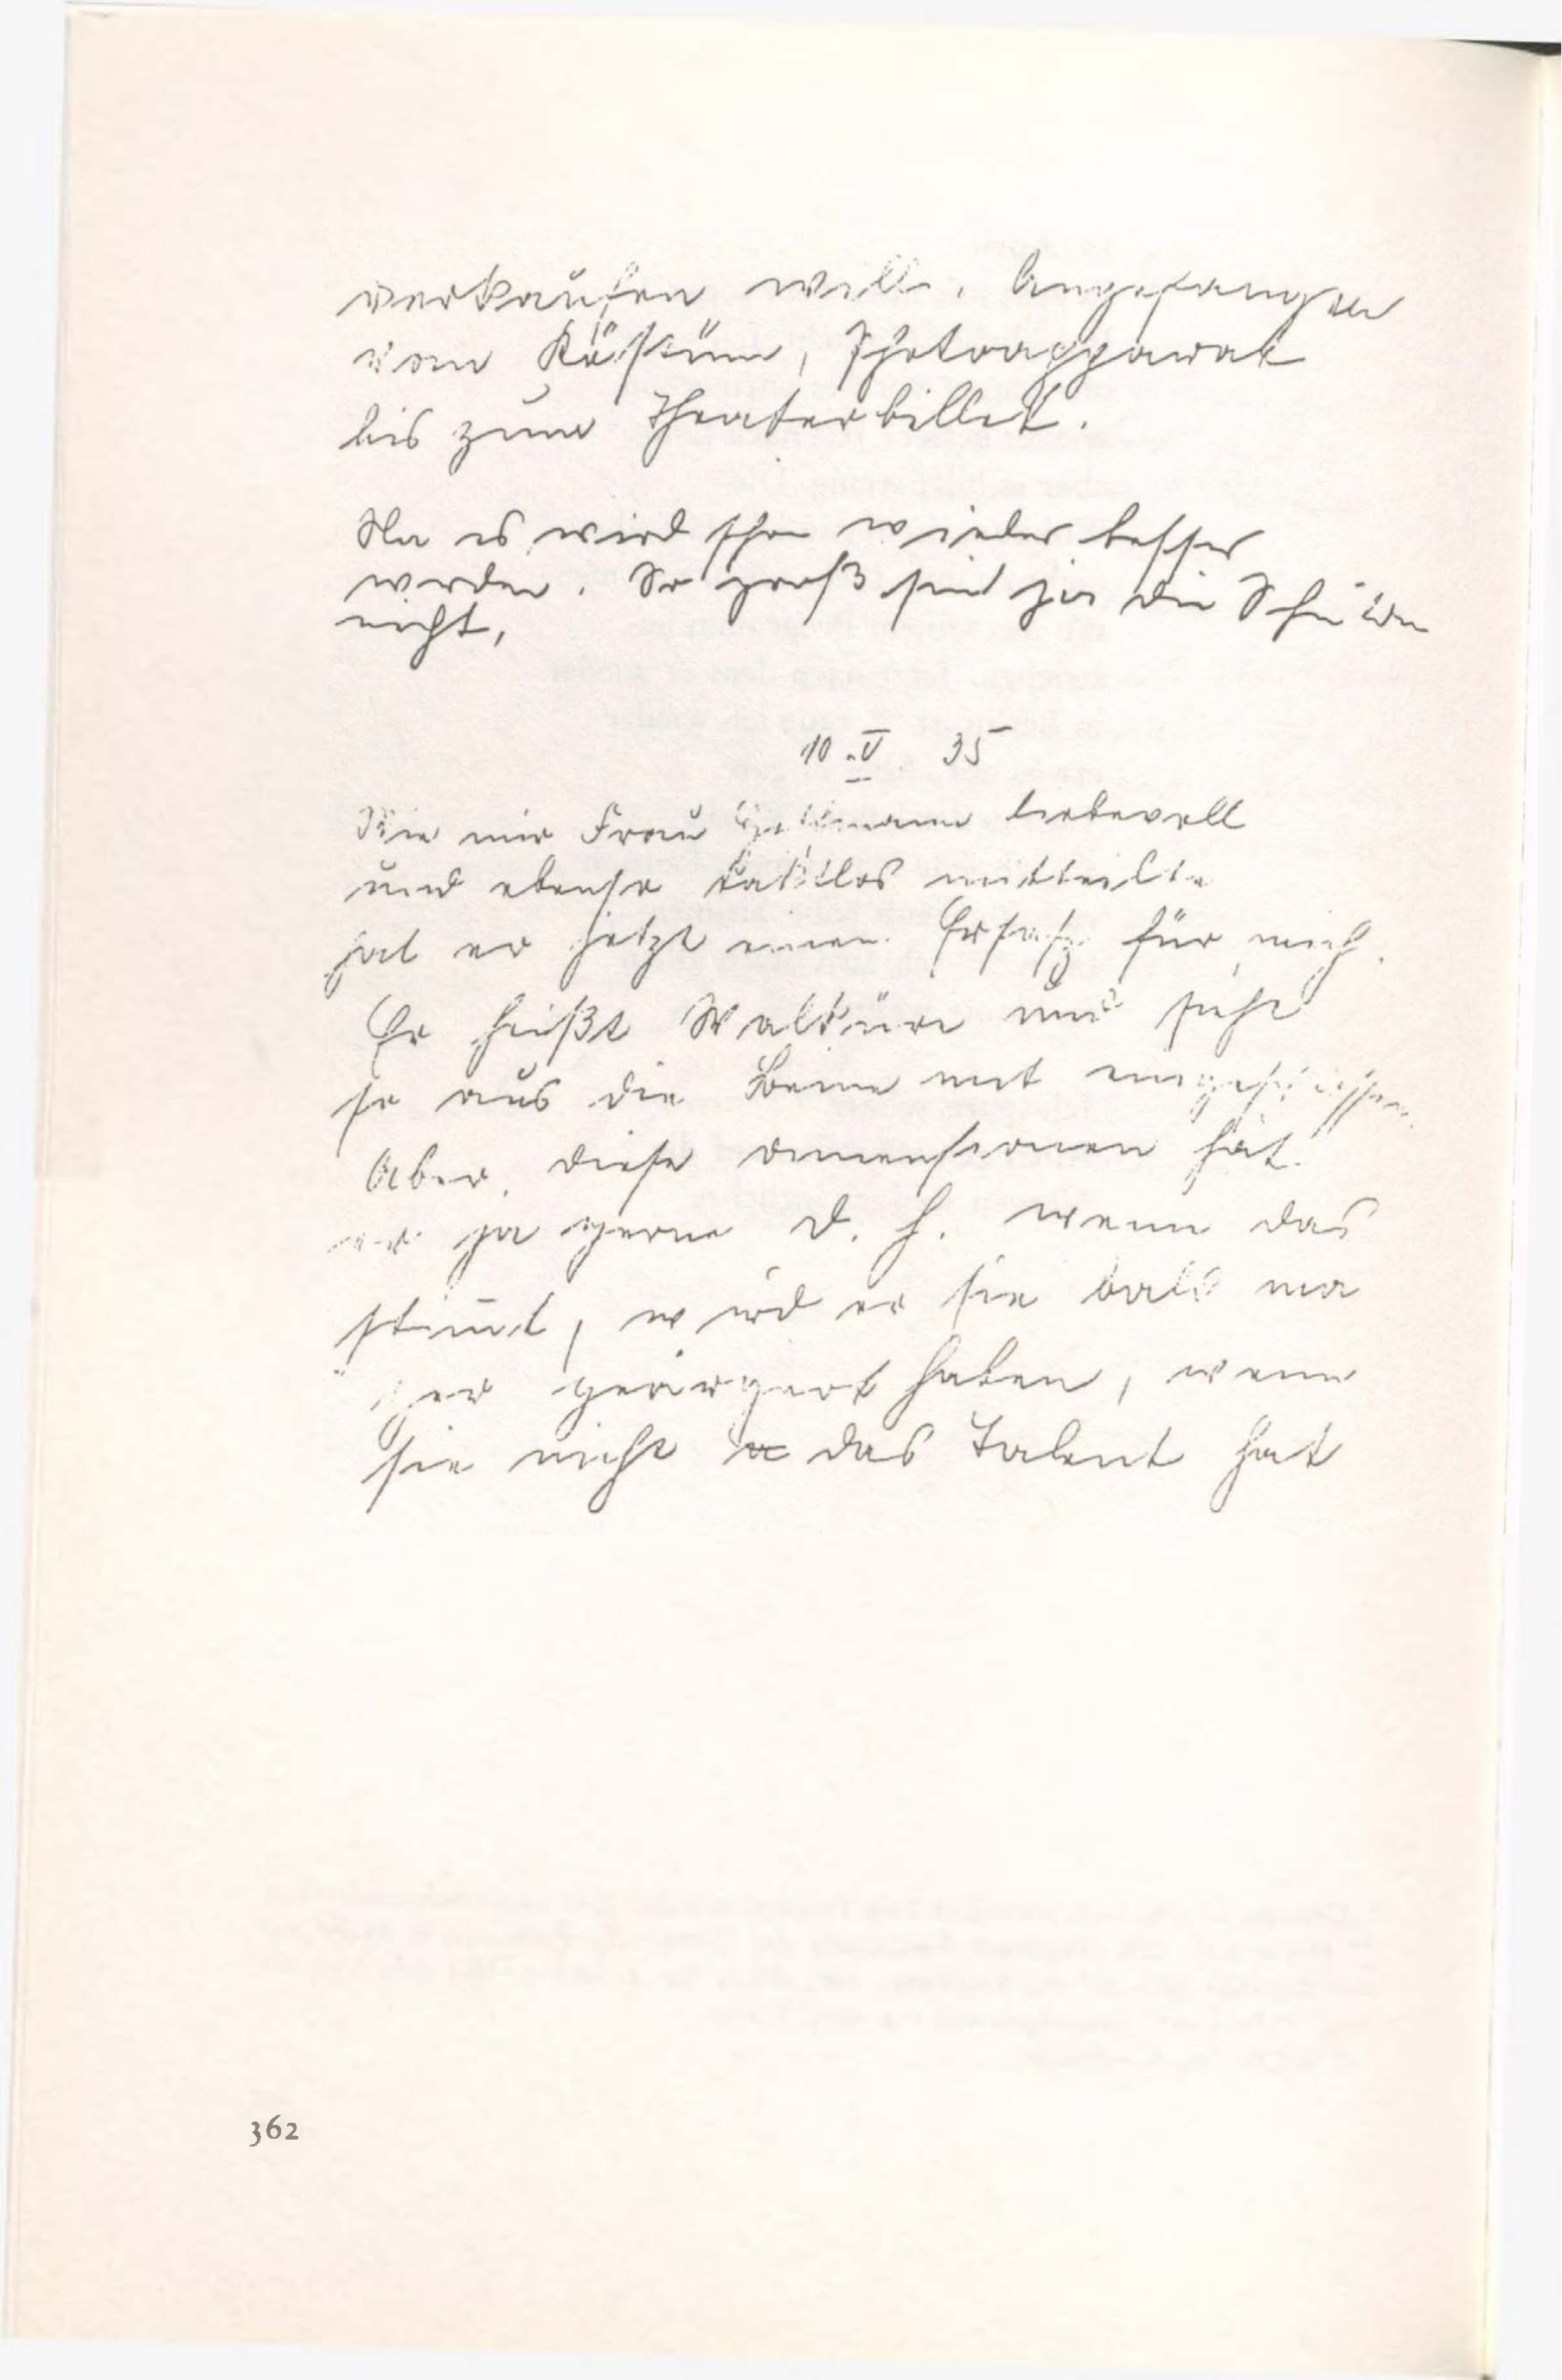 verkaufen will. Angefangen
vom Köstüm, Photoapparat
bis zum Theaterbillet.
Na es wird schon wieder besser
werden. So groß sind ja die Schulden
nicht,
10.V. 35
Wie mir Frau liebevoll
und ebenso taktlos mitteilte
hat er jetzt einen Ersatz für mich.
Er heißt Walküre und sieht
so aus die Beine mit eingeschlossen.
Aber diese dimensionen hat
er ja gerne d. h. wenn das
stimmt, wird er sie bald ma
ger geärgert haben, wenn
sie nicht das Talent hat
362